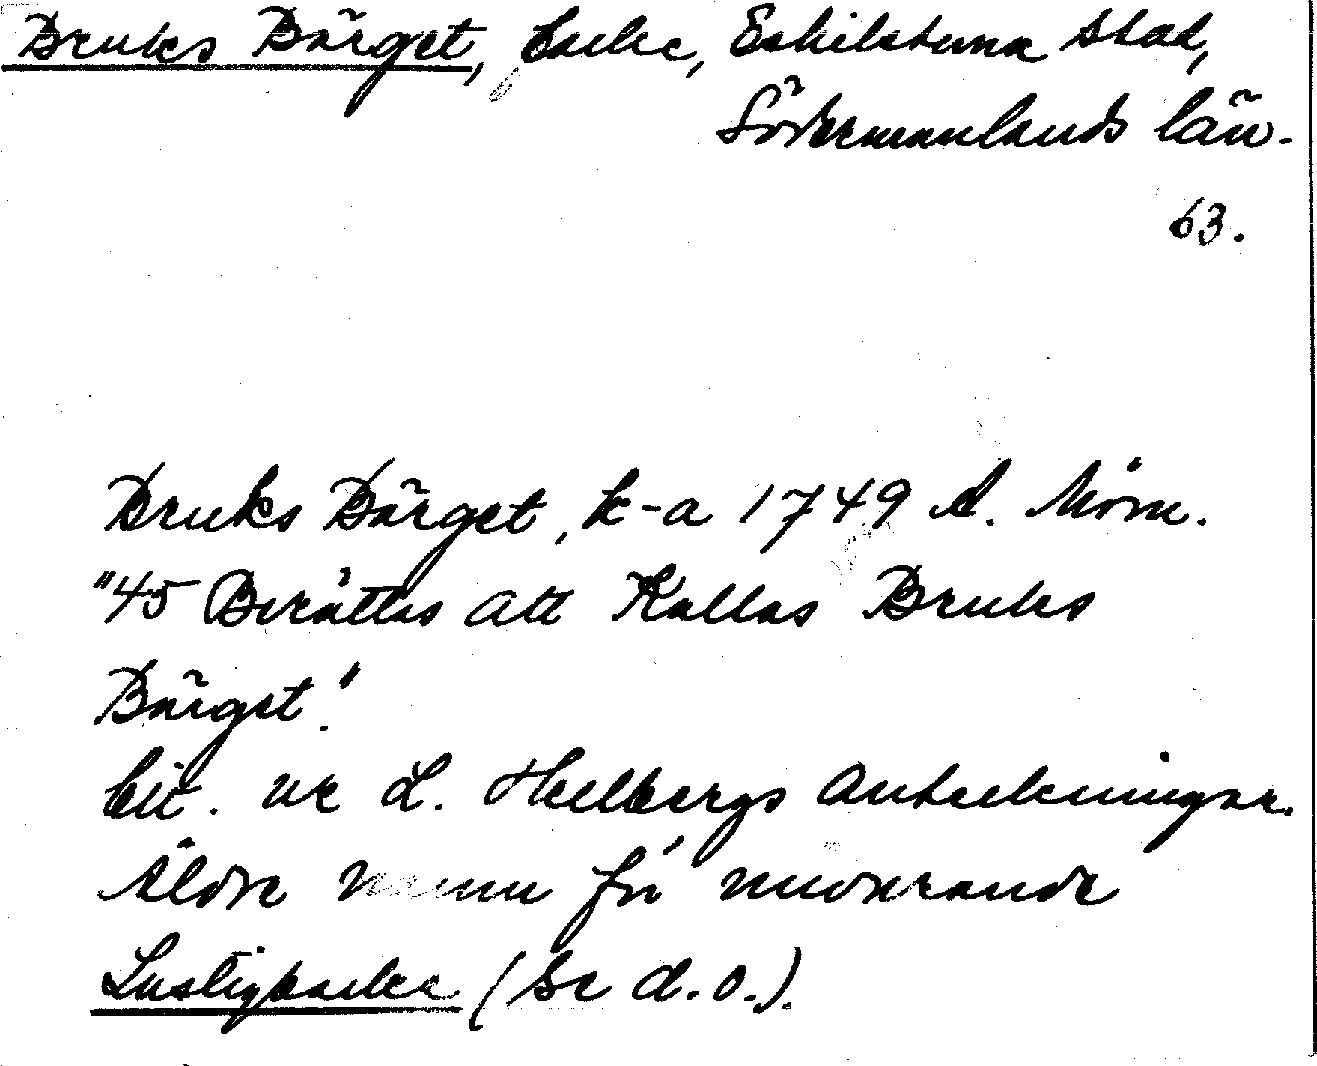 Bruks Bärget, backe, Eskilstuna stad,
Södermanlands län.
63.
Bruks Bärget, k-a 1749 A. Mörn.
"45 Berättas att Kallas Bruks
Bärget."
Cit. ur L. Hellbergs Anteckningar.
Äldre namn för nuvarande
Lustigbacke (Se d.o.).